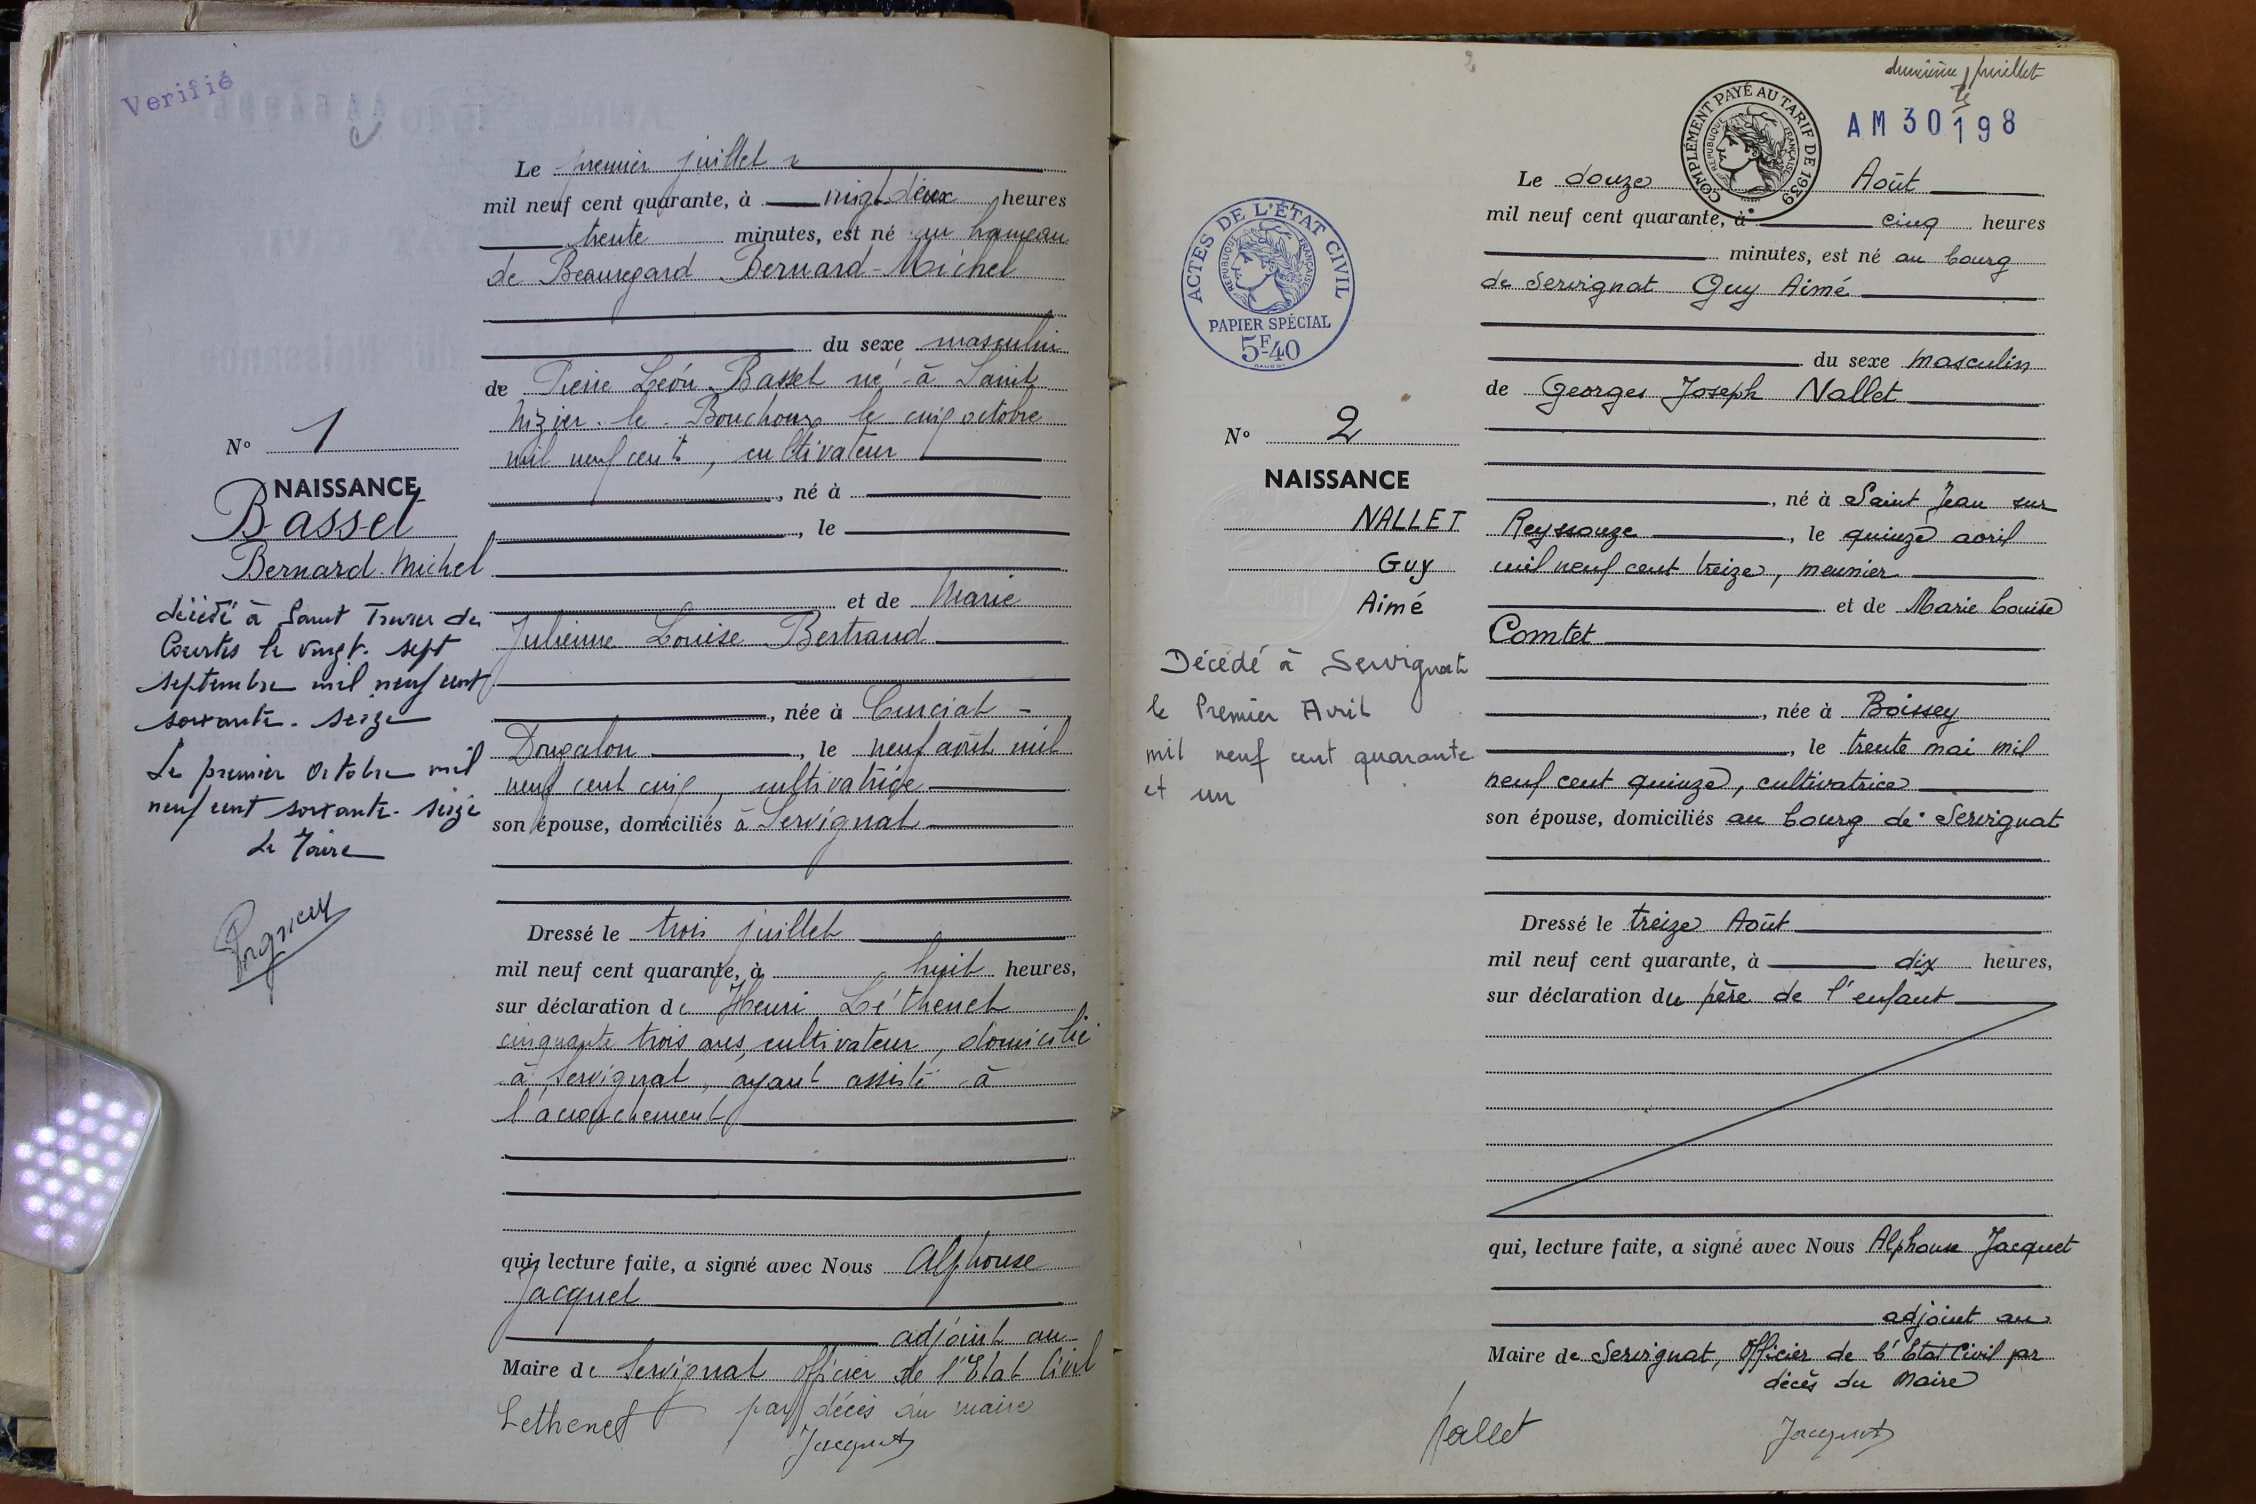 Verifié
Le premier juillet
mil neuf cent quarante, à vingt deux heures
trente minutes, est né au hameau
de Beauregard Bernard-Michel
du sexe masculin
de Pierre Léon Basset né à Saint
Nizier-le-Bouchoux le cinq octobre
mil neuf cent, cultivateur
, né à
, le
et de Marie
Julienne Louise Bertrand
, née à Curciat-
Dongalon, le neuf août mil
neuf cent cinq, cultivatrice
son épouse, domiciliés à Servignat
Dressé le trois juillet
mil neuf cent quarante, à huit heures,
sur déclaration de Henri Léthenet
cinquante trois ans, cultivateur, domicilié
à Servignat, ayant assisté à
l'acouchement
qui, lecture faite, a signé avec Nous Alphonse
Jacquet
adjoint au
Maire de Servignat Officier de l'Etat Civil
par décès du maire
Lethenet
Jacquet
N° 1
NAISSANCE
Basset
Bernard-Michel
décédé à Saint Trivier de
Courtes le vingt-sept
septembre mil neuf cent
soixante-seize
Le premier Octobre mil
neuf cent soixante-seize
Le Maire
deuxième feuillet
AM 30 198
COMPLÉMENT PAYÉ AU TARIF DE 1939
RÉPUBLIQUE FRANÇAISE
ACTES DE L'ÉTAT CIVIL
RÉPUBLIQUE FRANÇAISE
PAPIER SPÉCIAL
5F-40
N° 2
NAISSANCE
NALLET
Guy
Aimé
Décédé à Servignat
le Premier Avril
mil neuf cent quarante
et un
Le douze Août
mil neuf cent quarante, à cinq heures
minutes, est né au bourg
de Servignat Guy Aimé
du sexe masculin
de Georges Joseph Nallet
, né à Saint Jean sur
Reyssouze, le quinze avril
mil neuf cent treize, meunier
et de Marie Louise
Comtet
, née à Boissey
, le trente mai mil
neuf cent quinze, cultivatrice
son épouse, domiciliés au bourg de Servignat
Dressé le treize Août
mil neuf cent quarante, à dix heures,
sur déclaration du père de l'enfant
qui, lecture faite, a signé avec Nous Alphonse Jacquet
adjoint au
Maire de Servignat, Officier de l'Etat Civil par
décès du Maire
Nallet
Jacquet